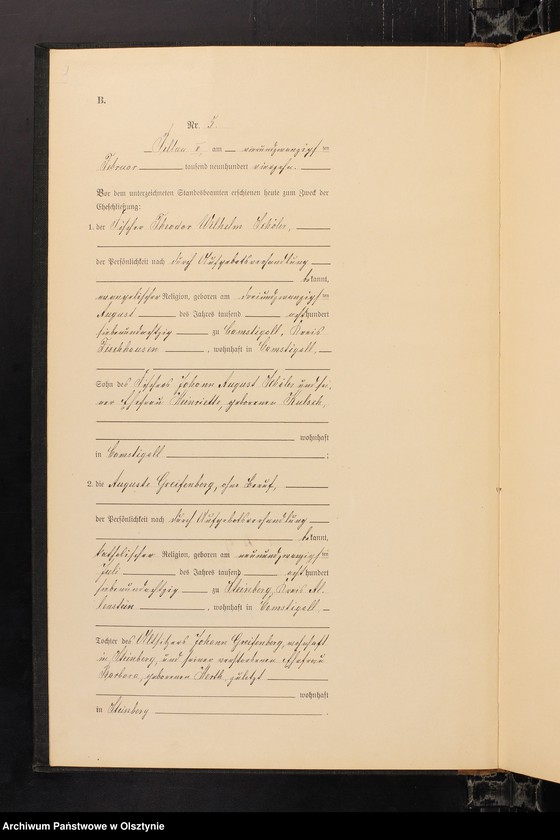 B.
Nr. 5.
am vierundzwanzigsten
Februar tausend neunhundert vierzehn.
Vor dem unterzeichneten Standesbeamten erschienen heute zum Zweck der
Eheschließung:
1. der Fischer Theodor Wilhelm Schöler,
der Persönlichkeit nach durch Aufgebotsverhandlung
bekannt,
evangelischer Religion, geboren am dreiundzwanzigsten
August des Jahres tausend achthundert
siebenundachtzig zu Camstigall, Kreis
Fischhausen, wohnhaft in Camstigall,
Sohn des Fischers Johann August Schöler und sei-
ner Ehefrau Henriette, geborenen
wohnhaft
in Camstigall ;
2. die Auguste Greifenberg, ohne Beruf,
der Persönlichkeit nach durch Aufgebotsverhandlung
bekannt,
katholischer Religion, geboren am neunundzwanzigsten
Juli des Jahres tausend achthundert
siebenundachtzig zu Steinberg, Kreis Al-
lenstein, wohnhaft in Camstigall,
Tochter des Altsitzers Johann Greifenberg, wohnhaft
in Steinberg, und seiner verstorbenen Ehefrau
Barbara, geborenen zuletzt
wohnhaft
in Steinberg .
Archiwum Państwowe w Olsztynie